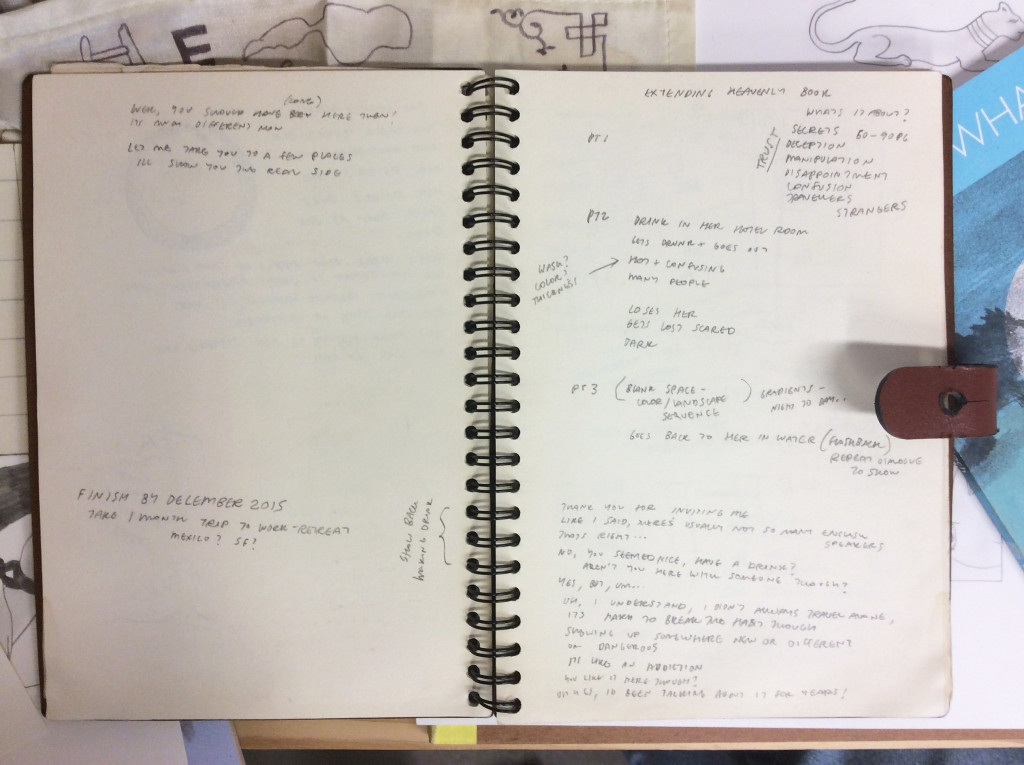 E
WHA
(LONG)
WELL, YOU SHOULD HAVE BEEN HERE THEN!
ITS MUCH DIFFERENT NOW
LET ME TAKE YOU TO A FEW PLACES
ILL SHOW YOU THE REAL SIDE
FINISH BY DECEMBER 2015
TAKE 1 MONTH TRIP TO WORK-RETREAT
MEXICO? SF?
EXTENDING HEAVENLY BOOK
WHATS IT ABOUT?
TRUST
SECRETS 80-90PG
DECEPTION
MANIPULATION
DISAPPOINTMENT
CONFUSION
TRAVELLERS
STRANGERS
PT1
PT2 DRINK IN HER HOTEL ROOM
GETS DRUNK + GOES OUT
HOT + CONFUSING
MANY PEOPLE
WASH?
COLOR?
LOSES HER
GETS LOST SCARED
DARK
PT3 (BLANK SPACE-
COLOR/LANDSCAPE
SEQUENCE)
GRADIENTS-
NIGHT TO DAY...
GOES BACK TO HER IN WATER (FLASHBACK)
REPEAT DIALOGUE
TO SHOW
SHOW BACK
MAKING DRINK
THANK YOU FOR INVITING ME
LIKE I SAID, THERE'S USUALLY NOT SO MANY ENGLISH
SPEAKERS
THATS RIGHT...
NO, YOU SEEMED NICE, HAVE A DRINK?
AREN'T YOU HERE WITH SOMEONE THOUGH?
YES, BUT, UM...
OH, I UNDERSTAND, I DIDN'T ALWAYS TRAVEL ALONE,
ITS HARD TO BREAK THE HABIT THOUGH
SHOWING UP SOMEWHERE NEW OR DIFFERENT
OR DANGEROUS
ITS LIKE AN ADDICTION
YOU LIKE IT HERE THOUGH?
BEEN TALKING ABOUT IT FOR YEARS!